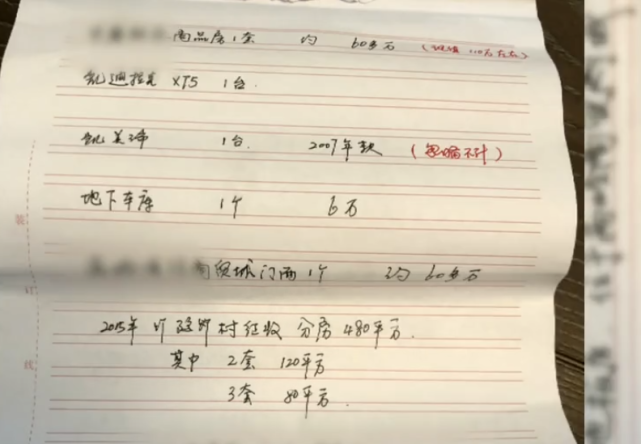 商品房1套 约 60多万 (现值110万左右)
凯迪拉克 XT5 1台.
凯美瑞 1台. 2007年款 (忽略不计)
地下车库 1个 6万
商贸城门面1个 约 60多万
2015年 村征收 分房 480平方.
其中 2套 120平方
3套 80平方.
装
订
线